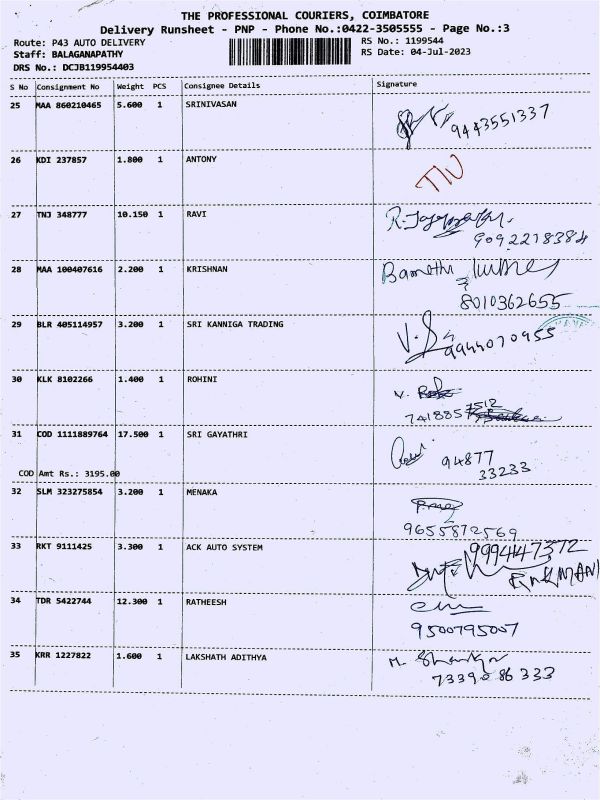 THE PROFESSIONAL COURIERS, COIMBATORE
Delivery Runsheet - PNP - Phone No.:0422-3505555 - Page No.:3
Route: P43 AUTO DELIVERY RS No.: 1199544
Staff: BALAGANAPATHY RS Date: 04-Jul-2023
DRS No.: DCJB119954403
S No Consignment No Weight PCS Consignee Details Signature
25 MAA 860210465 5.600 1 SRINIVASAN
9443551337
26 KDI 237857 1.800 1 ANTONY
27 TNJ 348777 10.150 1 RAVI
9092218384
28 MAA 100407616 2.200 1 KRISHNAN
8010362655
29 BLR 405114957 3.200 1 SRI KANNIGA TRADING
9944070955
30 KLK 8102266 1.400 1 ROHINI
7418857512
31 COD 1111889764 17.500 1 SRI GAYATHRI
94877
33233
COD Amt Rs.: 3195.00
32 SLM 323275854 3.200 1 MENAKA
9655872569
33 RKT 9111425 3.300 1 ACK AUTO SYSTEM
9994447372
34 TDR 5422744 12.300 1 RATHEESH
9500795007
35 KRR 1227822 1.600 1 LAKSHATH ADITHYA
7339086333